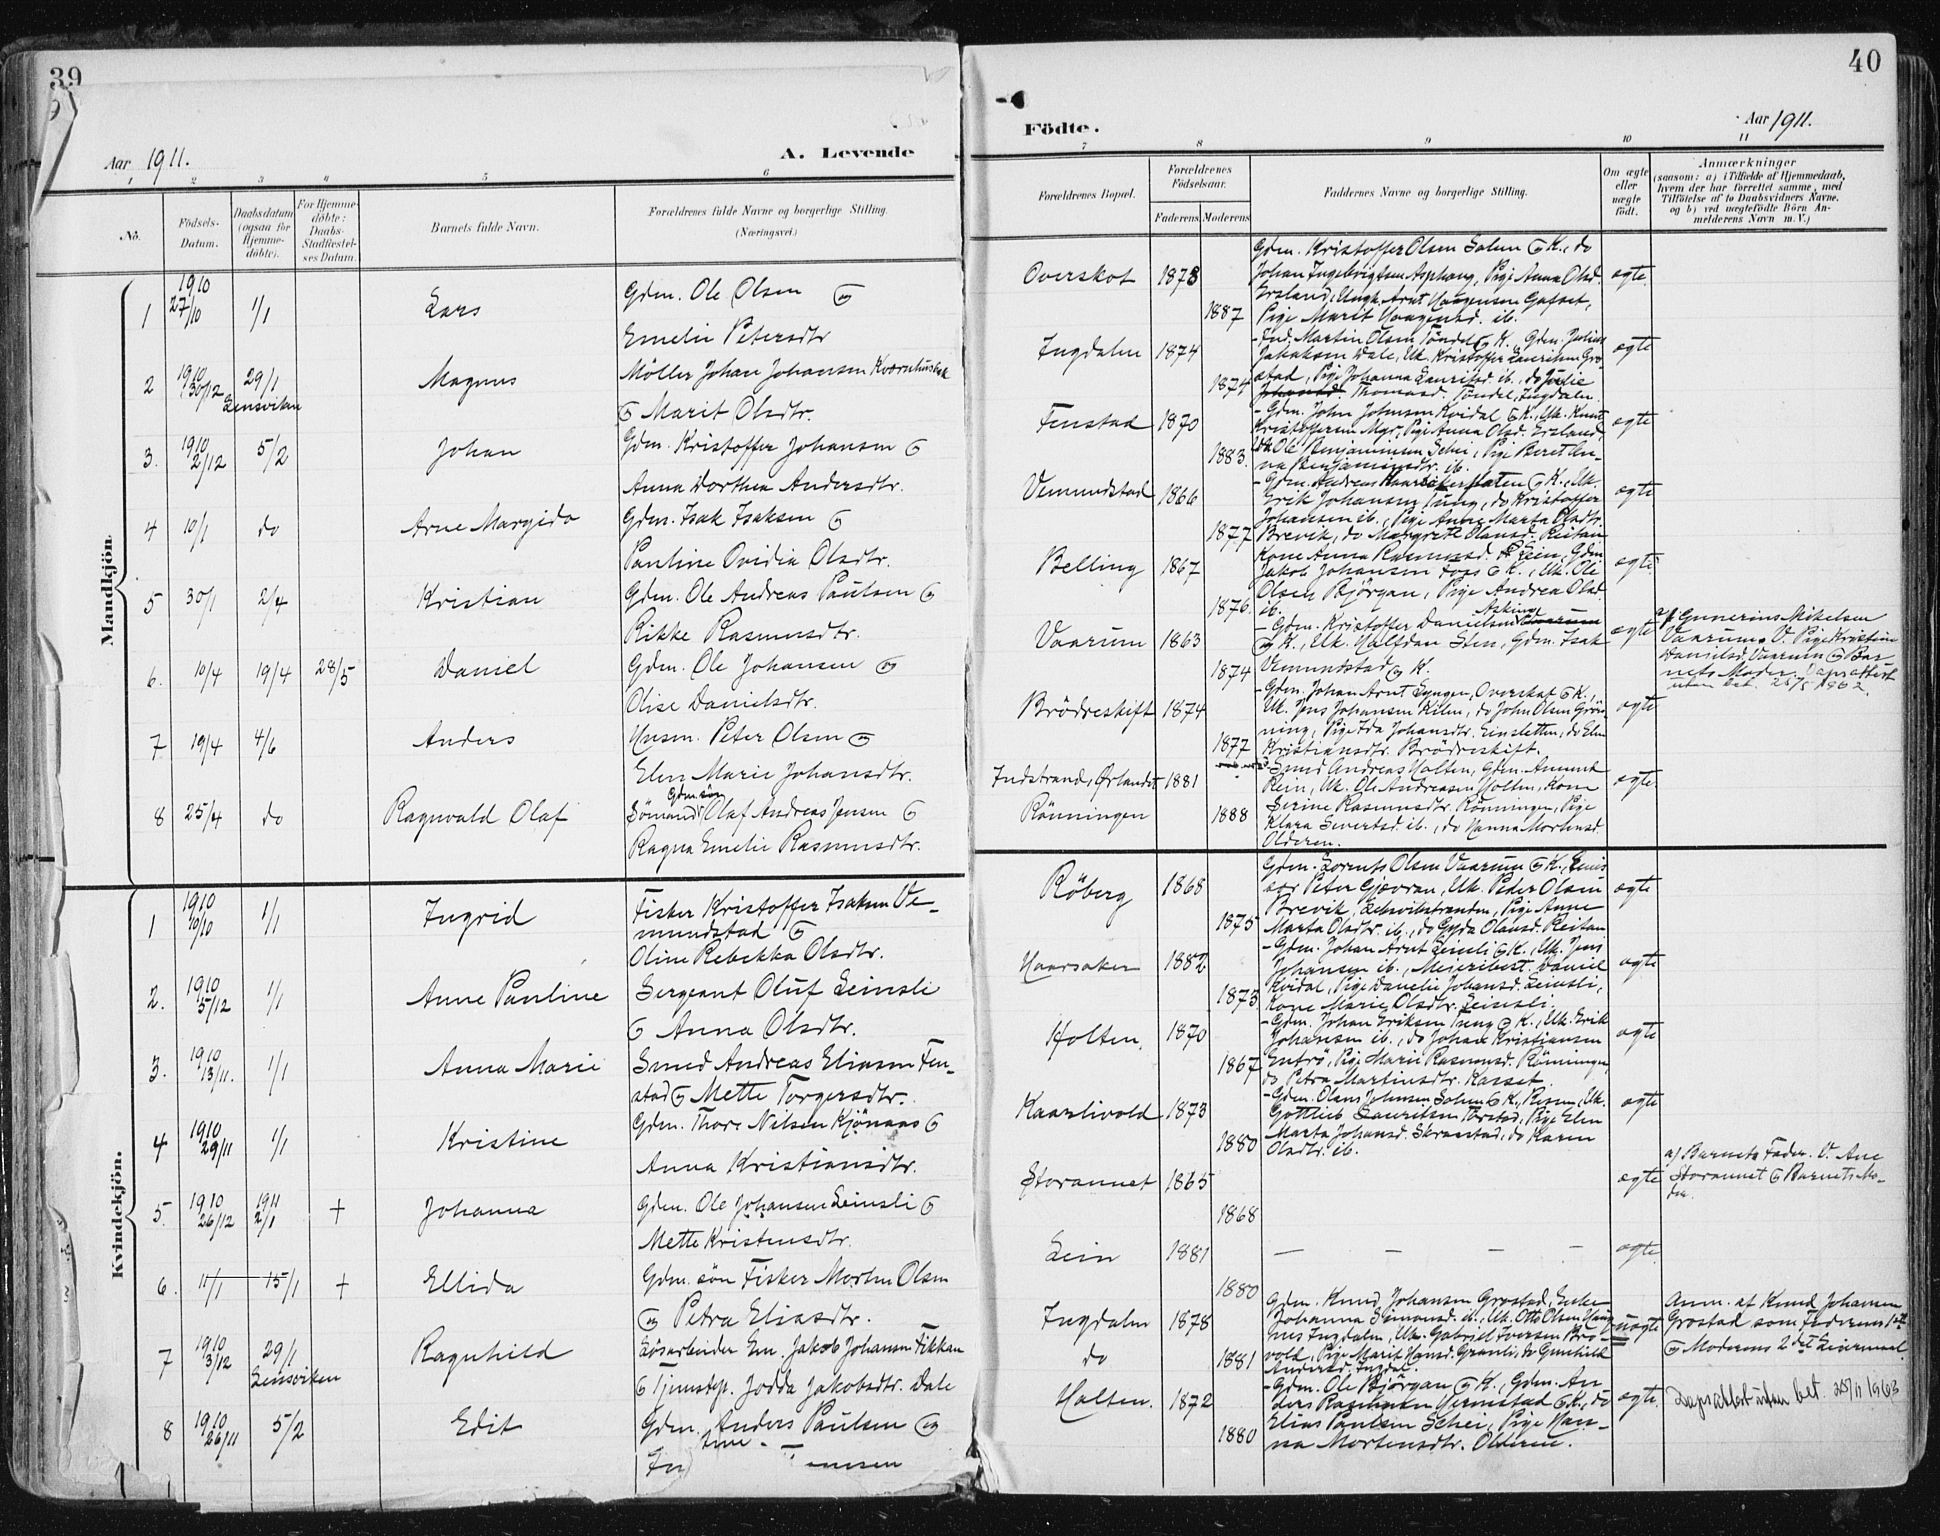 39
Aar 1911.
A. Levende
1 2 3 4 5 6
No.
Födsels-Datum.
Daabsdatum (ogsaa for Hjemme-döbte).
For Hjemme-döbte: Daabs-Stadfæstel-ses Datum.
Barnets fulde Navn.
Forældrenes fulde Navne og borgerlige Stilling.
(Næringsvei.)
Mandkjön.
1 1910 27/10 1/1 Lars Gdm. Ole Olsen og
Emelie Petersdtr
2 1910 30/12 29/1 Lensviken Magnus Möller Johan Johansen Kværnhusbak
og Marit Olsdtr.
3. 1910 2/12 5/2 Johan Gdm. Kristoffer Johansen og
Anna Dorthea Andersdtr.
4 10/1 do Arne Margido Gdm. Isak Isaksen og
Pauline Ovidia Olsdtr.
5 30/1 2/4 Kristian Gdm. Ole Andreas Paulsen og
Rikke Rasmusdtr.
6. 10/4 19/4 28/5 Daniel Gdm. Ole Johansen og
Olise Danielsdtr.
7 19/4 4/6 Anders Husm. Peter Olsen og
Elen Marie Johansdtr.
Gdm. sön
8 25/4 do Ragnvald Olaf Sömand Olaf Andreas Jensen og
Ragna Emelie Rasmusdtr.
Kvindekjön.
1 1910 10/10 1/1 Ingrid Fisker Kristoffer Isaksen Ve-
mundstad og
Oline Rebekka Olsdtr.
2. 1910 5/12 1/1 Anne Pauline Sergeant Oluf Leinsli
og Anna Olsdtr.
3. 1910 13/11. 1/1 Anna Marie Smed Andreas Eliasen Fen-
stad og Mette Torgersdtr.
4 1910 29/11 1/1 Kristine Gdm. Thore Nilsen Kjönaas og
Anna Kristiansdtr.
5. 1910 26/12 1911 2/1 + Johanna Gdm. Ole Johansen Leinsli og
Mette Kristensdtr.
6. 11/1 15/1 + Ellida Gdm. sön Fisker Morten Olsen
og Petra Eliasdtr.
7 1910 3/12 29/1 Lensviken Ragnhild Lösarbeider Em. Jakob Johansen Fikkan
og Tjenstep. Jodda Jakobsdtr. Dale
8 1910 26/11 5/2 Edit Gdm. Anders Paulsen og
40
Födte.
Aar 1911.
7 8 9 10 11
Forældrenes Bopæl.
Forældrenes Födselsaar.
Faderens Moderens
Faddernes Navne og borgerlige Stilling.
Om ægte eller uægte födt.
Anmærkninger
(saasom: a) i Tilfælde af Hjemmedaab, hvem der har forrettet samme, med Tilföielse af to Daabsvidners Navne, og b) ved uægtefödte Börn Anmelderens Navn m. V.)
Overskot 1873 1887 Gdm. Kristoffer Olsen Solem og K., do
Johan Ingebrigtsen Asphaug, Pige Anna Olsd.
Ersland, Ungk. Arnt Haagensen Gafset,
Pige Marit Haagensd. ib.
ægte.
Ingdalen 1874 1874 Ind. Martin Olsen Töndel og K., Gdm. Julius
Jakobsen Dale, Uk. Kristoffer Lauritsen Gro-
stad, Pige Johanna Lauritsd. ib., do Jodie
Johansd. Thomasd. Töndel, Ingdalen.
ægte
Fenstad 1870 1883. Gdm. John Johnsen Kvidal og K., Uk. Knut
Kristoffersen Myr, Pige Anna Olsd. Ersland,
Uk Ole Benjaminsen Schei, Pige Beret An-
na Benjaminsdtr. ib.
ægte
Vemundstad 1866 1877 ægte
Erik Johansen Tung, do Kristoffer
Johansen ib., Pige Anne Marta Olsdtr.
Brevik, do Margrete Olausd. Reitan
Belling 1867 1876. Kone Anna Rasmusd. Lein, Gdm
Jakob Johansen Foss og K., Uk. Ole
Olsen Björgan, Pige Andrea Olsd.
ib.
ægte
Vaarum 1863 1874 Gdm. Kristoffer Danielsen Asking
og K., Uk. Halfdan Sten, Gdm. Isak
Vemundstad og K.
ægte
a) Gunerius Mikelsen
Vaarum. V. Pige Krystine
Danielsd. Vaarum og Bar-
nets Moder. Dapsattest
uten bet. 25/5 1962.
Brödreskift 1874 1877 Gdm. Johan Arnt Lyngen, Overskot og K.,
Uk. Jens Johansen Kilen, do John Olsen Grön-
ning, Pige Ida Johansdtr. Leinsletten, do Elen
Kristiansdtr. Brödreskift.
ægte
Indstrand, Ørlandet
Rönningen 1881 1888 Smed Andreas Holten, Gdm. Amund
Rein, Uk. Ole Andreasen Holten, Kone
Serine Rasmusdtr. Rönningen, Pige
Klara Sivertsd. ib., do Hanna Mortensd.
Olderen.
ægte.
Röberg 1868 1875 Gdm. Lorents Olsen Vaarum og K.,
sor Peter Gjævran, Uk. Peder Olsen
Brevik, Leksvikstranden, Pige Anne
Marta Olsdtr. ib., do Gyda Olausd. Reitan
ægte
Haarsaker 1882 1873 Gdm. Johan Arnt Leinsli og K., Uk. Jens
Johansen ib., Meieribest. Daniel
Kvidal, Pige Danelie Johansd. Leinsli,
Kone Marie Olsdtr. Leinsli.
ægte
Holten. 1870 1867 Gdm. Johan Eriksen Tung og K., Uk. Erik
Johansen ib., do Johan Kristiansen
Entrö, Pige Marie Rasmusd. Rönningen
do Petra Martinsdtr. Kasset.
ægte
Kaarlivold 1873 1880 Gdm. Olaus Johnsen Solem og K., Risen, Uk.
Gottlieb Lauritsen Tørstad, Pige Elen
Marta Johansd. Skranstad, do Karen
Olsdtr. ib.
ægte
Storaunet 1865 1868 ægte
a) Barnets Fader. V. Ane
Storaunet og Barnets Mo-
der.
Lein 1881 1880 — — — — ægte.
Ingdalen 1878
do 1881 Gdm. Knud Johansen Grostad, Enke
Johanna Simonsd. ib., Uk. Otto Olsen Haug-
nes Ingdalen, Uk. Gabriel Iversen Bro-
vold, Pige Marit Hansd. Granli, do Gunhild
Andersd. Ingdal.
uægte
Anm. af Knud Johansen
Grostad som Faderens 1ste
og Moderens 2det Leiermaal.
Holten. 1872 1880 Gdm. Ole Björgan og K., Gdm. An-
ders Rasmusen Germstad og K., do
Elias Paulsen Schei, Pige Han-
na Mortensdtr. Olderen.
ægte.
Dapsattest uten bet. 25/11 1963